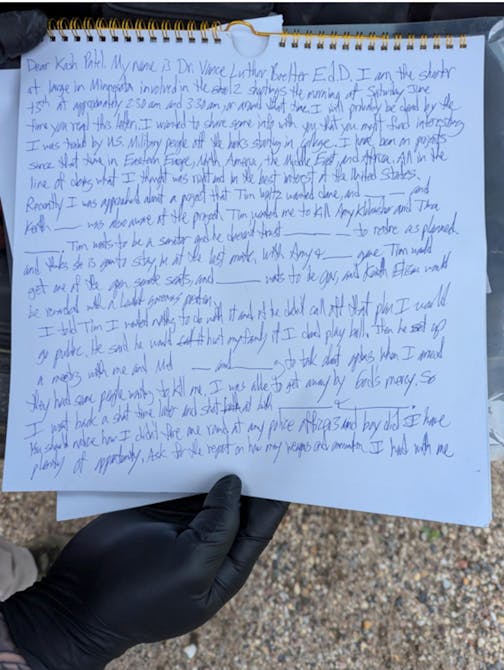 Dear Kash Patel. My name is Dr. Vance Luther Boelter Ed.D. I am the shooter
at large in Minnesota involved in the 2 shootings the morning of Saturday June
at approximately 2:30 am and 3:30 am or around that time. I will probably be dead by the
time you read this letter. I wanted to share some info with you that you might find interesting.
I was trained by U.S. Military people off the books starting in college. I have been on projects
since that time in Eastern Europe, North America, the Middle East, and Africa. All in the
line of doing what I thought was right and in the best interest of the United States.
Recently I was approached about a project that Tim Walz wanted done, and ____ and
Keith ____ was also aware of the project. Tim wanted me to kill Amy Klobuchar and Tina
____. Tim wants to be a senator and he doesn't trust ____ to retire as planned
and thinks she is going to stay in at the last minute, with Amy & ____ gone. Tim would
get one of the open senate seats, and ____ wants to be gov, and Keith would
be rewarded with a position.
I told Tim I wanted nothing to do with it and if he didn't call off that plan I would
go public. He said he would hurt my family if I didn't play ball, then he set up
a meeting with me and ____ and ____ to talk about when I arrived
they had some people waiting to kill me. I was able to get away by God's mercy. So
I went back a short time later and shot both ____ & ____
You should notice how I didn't fire one round at any police officers and boy did I have
plenty of opportunity. Ask for the report on how many weapons and ammunition I had with me